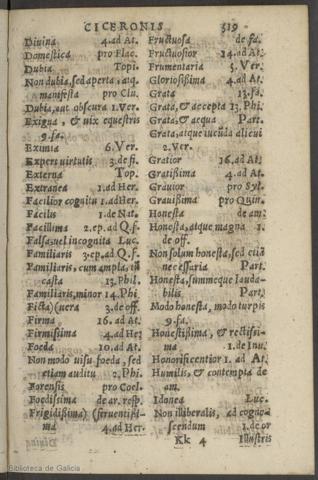 CICERONIS 519
Divina 4.ad At.
Domestica pro Flac.
Dubia Topi.
Non dubia, sed aperta, atq.
manifesta pro Clu.
Dubia, aut obscura 1.Ver.
Exigua, & vix equestris
9.fa.
Eximia 6.Ver.
Expers virtutis 3.de fi.
Externa Top.
Extranea 1.ad Her.
Facilior cognitu 1.adHer.
Facilis 1.de Nat.
Facillima 2.ep.ad Q.f.
Falsa, vel incognita Luc.
Familiaris 3.ep.ad Q.f.
Familiaris, cum ampla, tū
casta 13.Phil.
Familiaris, minor 14.Phi.
Ficta)(vera 3.de off.
Firma 16.ad At.
Firmißima 4.ad He.
Foeda 10.ad At.
Non modo visu foeda, sed
etiam auditu 2.Phi.
Forensis pro Coel.
Foedißima de ar.resp.
Frigidißima) (ferventißi-
ma 4.ad Her.
Fructuosa de fa.
Fructuosior 14.ad At.
Frumentaria 5.Ver.
Gloriosißima 4.ad At.
Grata 13.fa.
Grata, & accepta 13.Phi.
Grata, & acqua Part.
Grata, atque iucūda alicui
2.Ver.
Gratior 16.ad At.
Gratißima 4.ad At.
Gravior pro Syl.
Gravißima pro Quin.
Honesta de am.
Honesta, atque magna 1.
de off.
Non solum honesta, sed etiā
necessaria Part.
Honesta, summeque lauda-
bilis Part.
Modo honesta, modo turpis
9.fa.
Honestißima, & rectißi-
ma 1.de Inu.
Honorificentior 1.ad At.
Humilis, & contempta de
am.
Idonea Luc.
Non illiberalis, ad cogno-
scendum 1.de or
Kk 4 Illustris
Biblioteca de Galicia